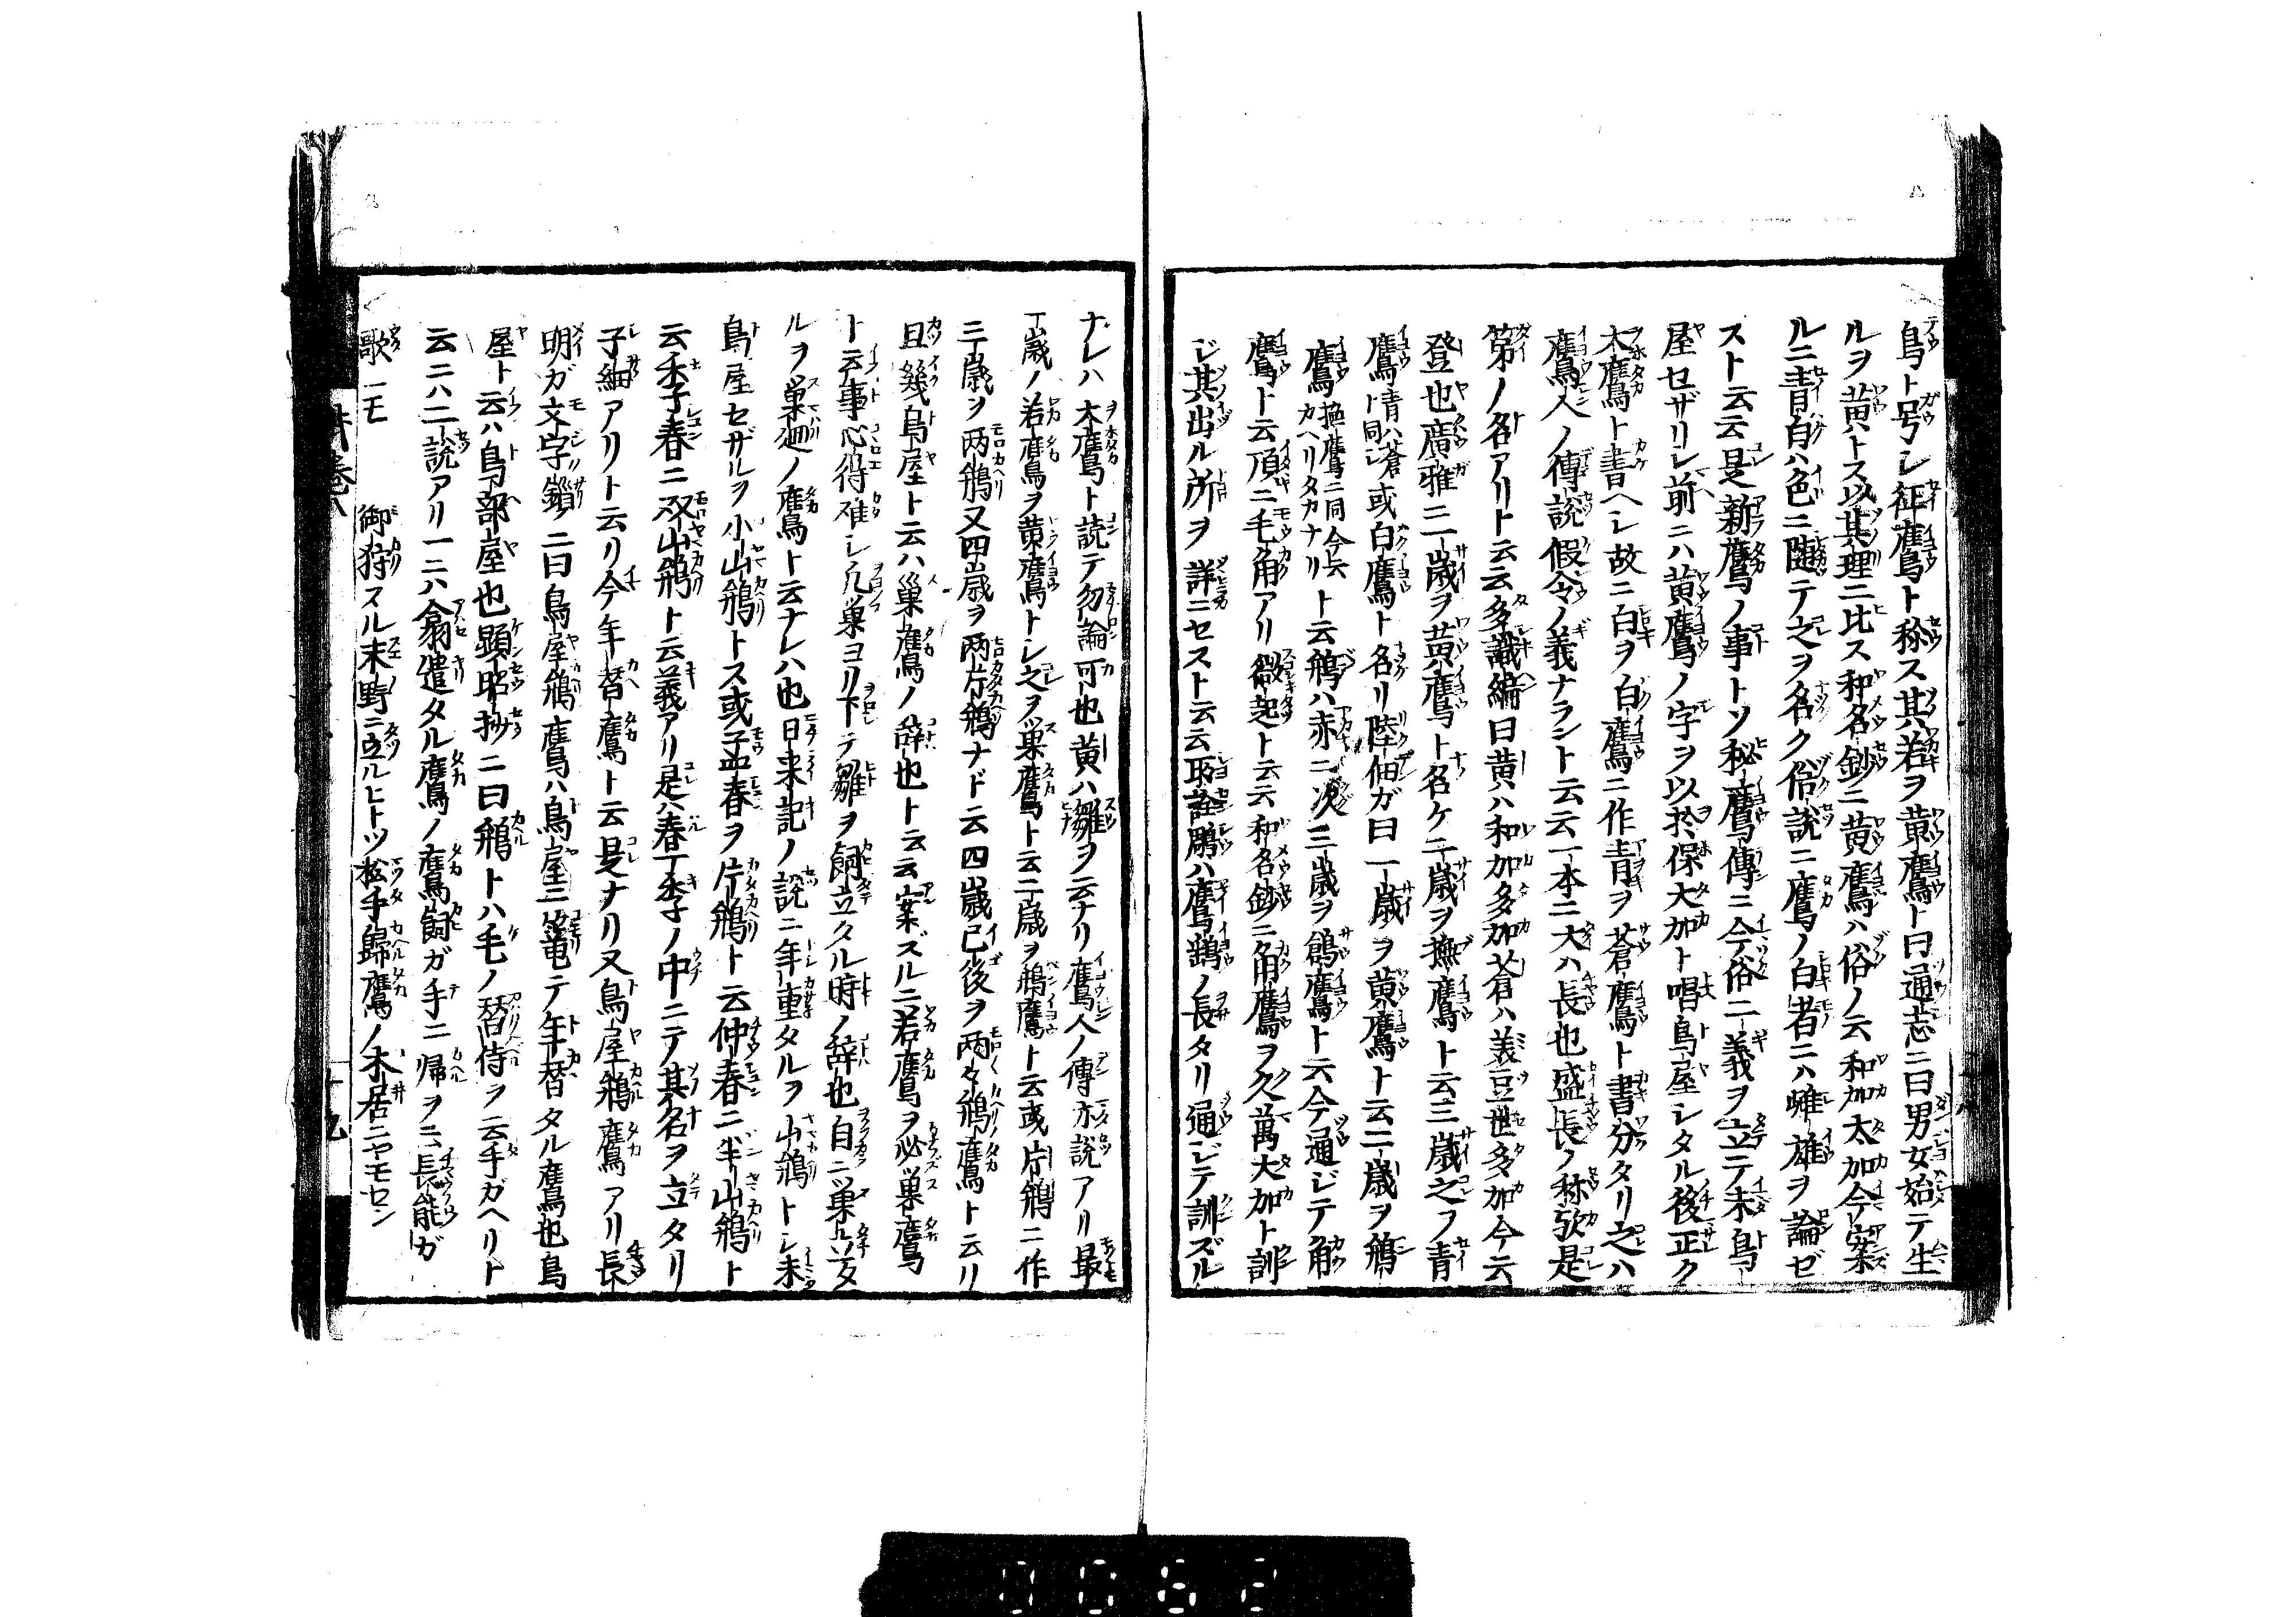 鳥ト号シ征鷹ト称ス其若ヲ黄鷹ト曰通志ニ曰男女始テ生
ルヲ黄トス以其理ニ比ス和名鈔ニ黄鷹ハ俗ノ云和加太加今案ズ
ルニ青白ハ色ニ隨テ之ヲ名ク俗説ニ鷹ノ白者ニハ雌雄ヲ論ゼ
スト云云是新鷹ノ事トソ秘鷹傳ニ今俗二義ヲ立テ未鳥
屋セザリレ前ニハ黄鷹ノ字ヲ以於保大加ト唱鳥屋シタル後正ク
大鷹ト書ヘシ故ニ白ヲ白鷹ニ作青ヲ蒼鷹ト書分タリ之ハ
鷹人ノ傳説假令ノ義ナラント云云一本ニ大ハ長也盛長ノ称歟是
第ノ名アリト云云多識編曰黄ハ和加多加蒼ハ義豆世多加今云
登也廣雅ニ一歳ヲ黄鷹ト名ケ二歳ヲ撫鷹ト云三歳之ヲ青
鷹青ハ蒼ト同シ或白鷹ト名リ陸佃ガ曰一歳ヲ黄鷹ト云二歳ヲ鴘
鷹撫鷹ニ同今云カヘリタカナリト云鴘ハ赤ニ次三歳ヲ鶬鷹ト云今通ジテ角
鷹ト云頂ニ毛角アリ微起ト云云和名鈔ニ角鷹ヲ久萬大加ト訓
ジ其出ル所ヲ詳ニセスト云云所詮鵰ハ鷹鷂ノ長タリ通ジテ訓ズル
ナレハ大鷹ト説テ勿論可也黄ハ雛ヲ云ナリ鷹人ノ傳亦説アリ最
一歳ノ若鷹ヲ黄鷹トシ之ヲ巣鷹ト云二歳ヲ鴘鷹ト云或片鴘ニ作
三歳ヲ両鴘又四歳ヲ両片鴘ナド云四歳已後ヲ両々鴘鷹ト云リ
且幾鳥屋ト云ハ巣鷹ノ辞也ト云云案ズルニ若鷹ヲ必巣鷹
ト云事心得雖シ凡巣ヨリ下テ雛ヲ飼立クル時ノ辞也自ニ巣立
ルヲ巣廻ノ鷹ト云ナレハ也日来記ノ説ニ年重タルヲ山鴘トシ未
鳥屋セザルヲ小山鴘トス或孟春ヲ片鴘ト云仲春ニ半山鴘ト
云季春ニ双山鴘ト云義アリ是ハ春一季ノ中ニテ其名ヲ立タリ
子細アリト云リ今年替鷹ト云是ナリ又鳥屋鴘鷹アリ長
明ガ文字鏁ニ曰鳥屋鴘鷹ハ鳥屋ニ篭テ年替タル鷹也鳥
屋ト云ハ鳥部屋也顕昭抄ニ曰鴘トハ毛ノ替侍ヲ云手ガヘリト
云ニハ二説アリ一ニハ翕遣タル鷹ノ鷹飼ガ手ニ帰ヲ云長能ガ
歌ニモ　御狩スル末野ニ立ルヒトツ松手歸鷹ノ木居ニヤモセン